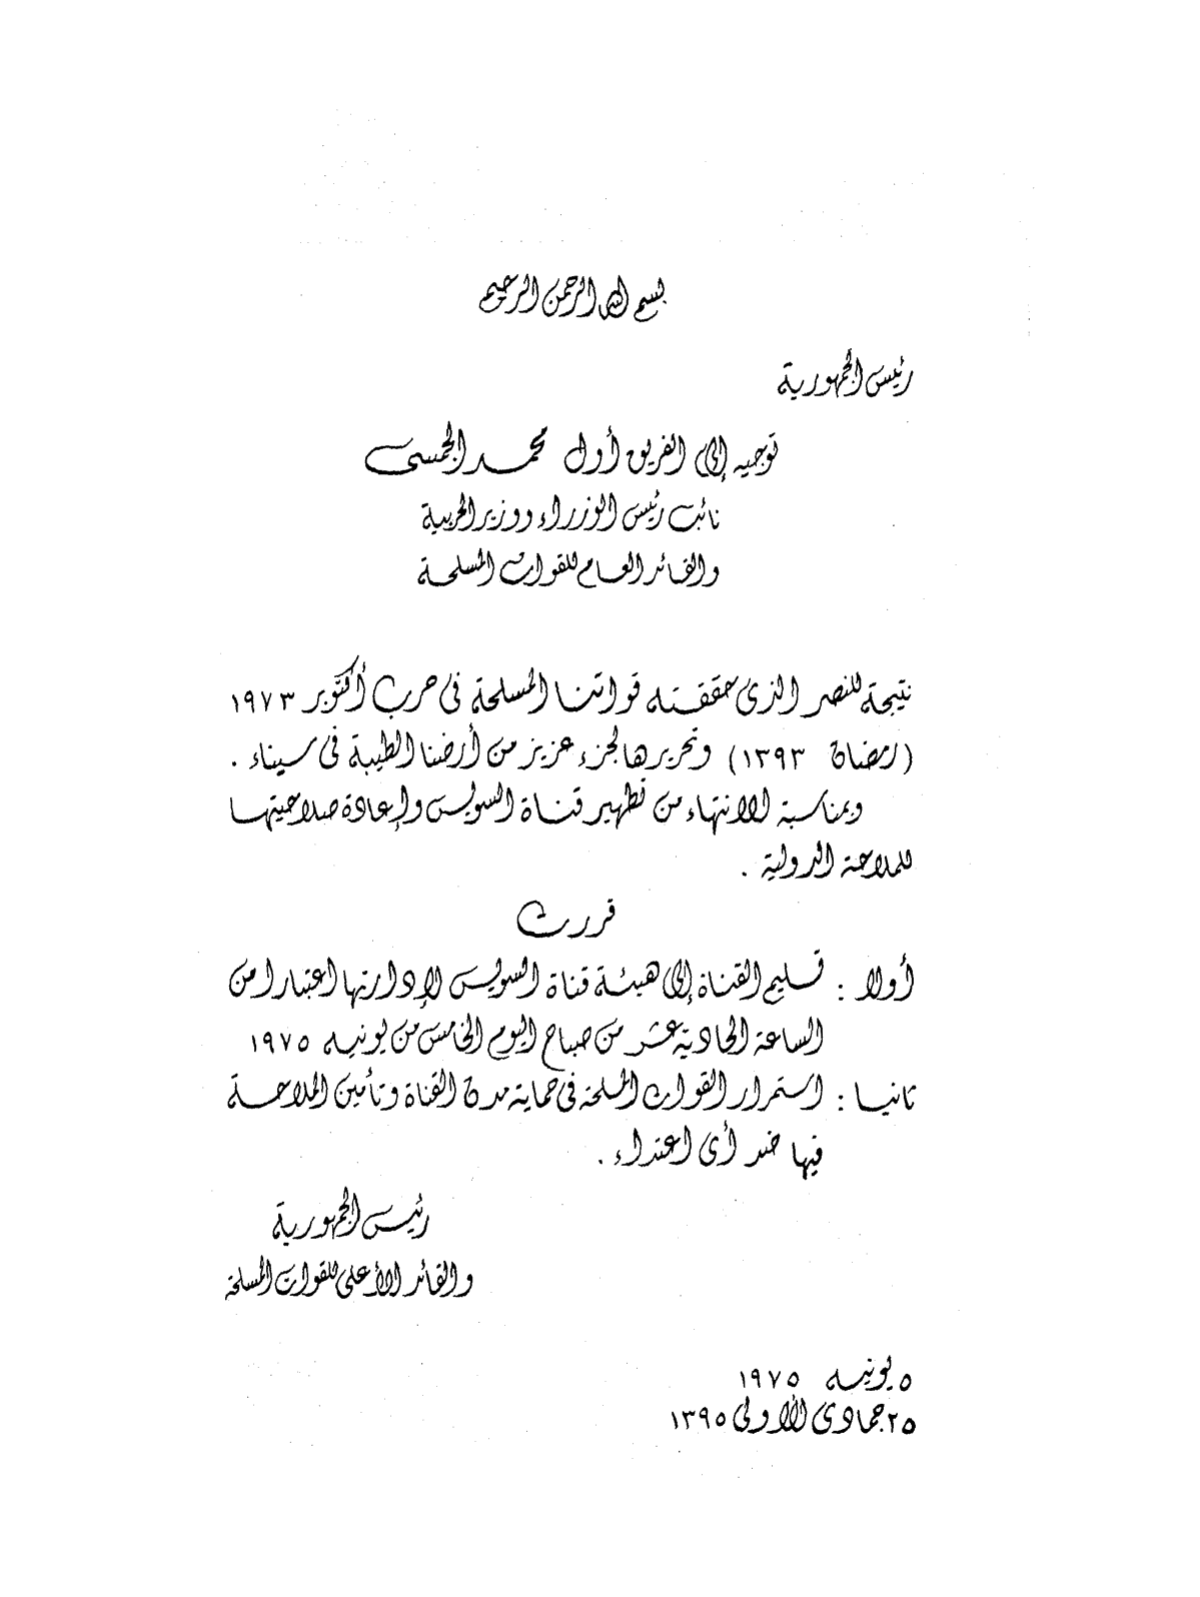 بسم الله الرحمن الرحيم
رئيس الجمهورية
توجيه إلى الفريق أول محمد الجمسى
نائب رئيس الوزراء ووزير الحربية
والقائد العام للقوات المسلحة
نتيجة للنصر الذى حققته قواتنا المسلحة فى حرب أكتوبر ١٩٧٣
(رمضان ١٣٩٣) وتحريرها لجزء عزيز من أرضنا الطيبة فى سيناء .
وبمناسبة الانتهاء من تطهير قناة السويس وإعادة صلاحيتها
للملاحة الدولية .
قررت
أولا : تسليم القناة إلى هيئة قناة السويس لإدارتها اعتبارا من
الساعة الحادية عشر من صباح اليوم الخامس من يونيه ١٩٧٥
ثانيا : استمرار القوات المسلحة فى حماية مدن القناة وتأمين الملاحة
فيها ضد أى اعتداء .
رئيس الجمهورية
والقائد الأعلى للقوات المسلحة
٥ يونيه ١٩٧٥
٢٥ جمادى الأولى ١٣٩٥